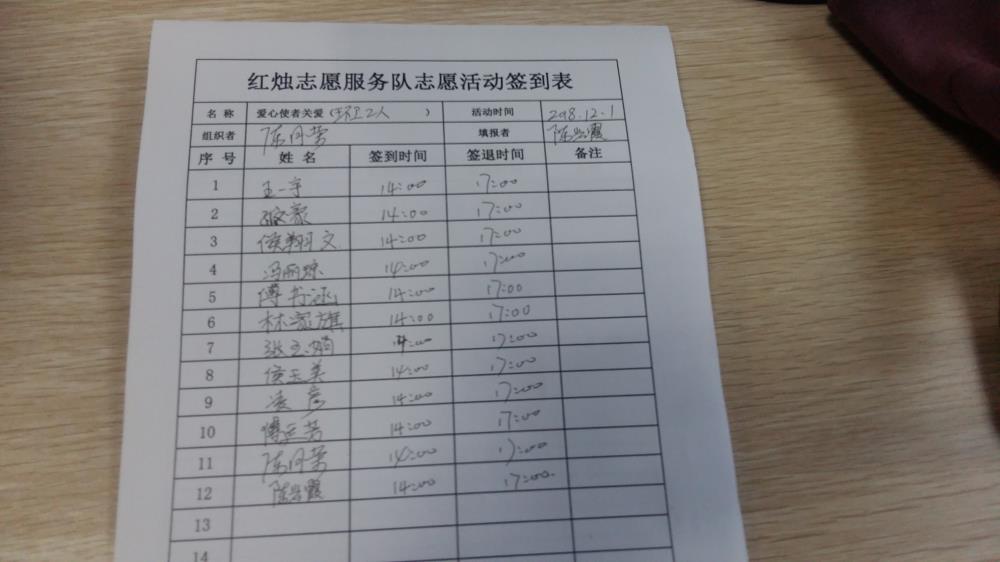 红烛志愿服务队志愿活动签到表
名 称 爱心使者关爱(环卫工人) 活动时间 2018.12.1
组织者 陈丹莺 填报者 陈岩霞
序 号 姓 名 签到时间 签退时间 备注
1 王一宇 14:00 17:00
2 14:00 17:00
3 侯翔文 14:00 17:00
4 冯丽琼 14:00 17:00
5 傅书泳 14:00 17:00
6 林家旗 14:00 17:00
7 张玉娟 14:00 17:00
8 侯玉美 14:00 17:00
9 凌彦 14:00 17:00
10 傅正芳 14:00 17:00
11 陈丹莺 14:00 17:00
12 陈岩霞 14:00 17:00
13
14